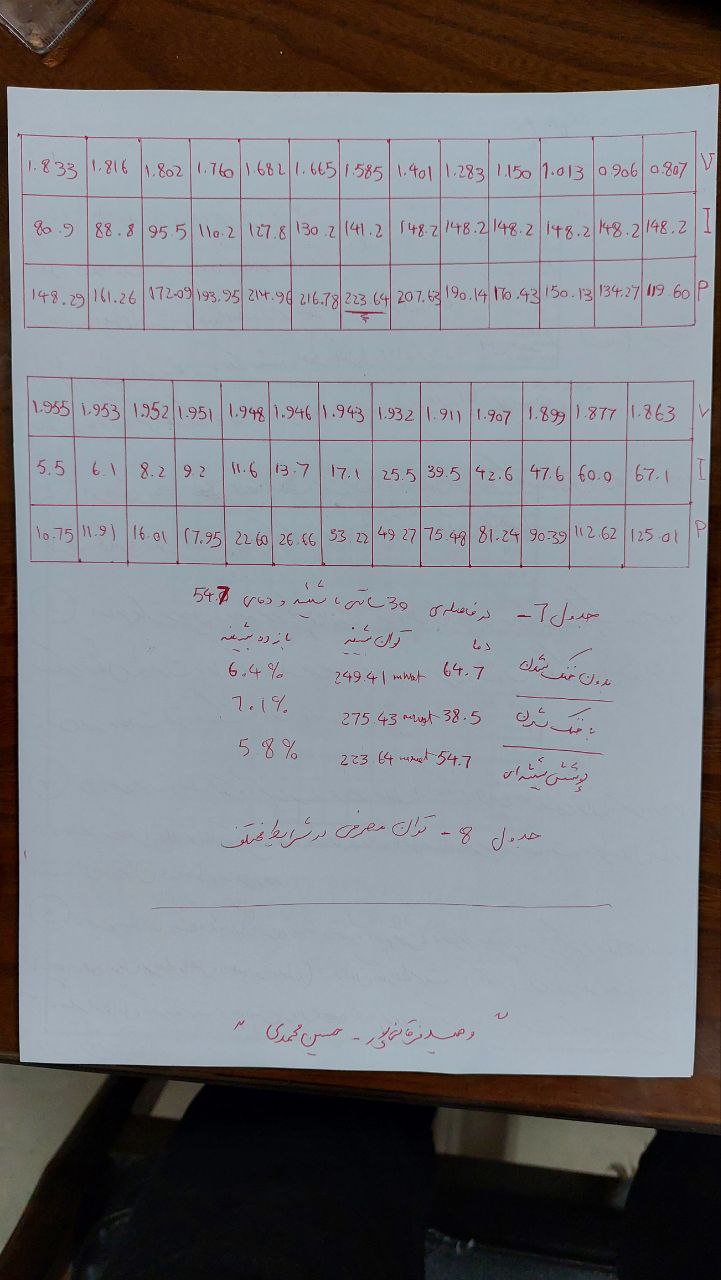 1.833 1.816 1.802 1.760 1.682 1.665 1.585 1.401 1.283 1.150 1.013 0.906 0.807 V
80.9 88.8 95.5 110.2 127.8 130.2 141.2 148.2 148.2 148.2 148.2 148.2 148.2 I
148.29 161.26 172.09 193.95 214.96 216.78 223.64 207.63 190.14 170.43 150.13 134.27 119.60 P
1.955 1.953 1.952 1.951 1.948 1.946 1.943 1.932 1.911 1.907 1.899 1.877 1.863 V
5.5 6.1 8.2 9.2 11.6 13.7 17.1 25.5 39.5 42.6 47.6 60.0 67.1 I
10.75 11.91 16.01 17.95 22.60 26.66 33.22 49.27 75.48 81.24 90.39 112.62 125.01 P
جدول 7 - در فاصله‌ی 30 سانتی با شیشه و دمای 54.7
دما توان بیشینه بازده بیشینه
بدون خنک شدن 64.7 249.41 mwat 6.4%
با خنک شدن 38.5 275.43 mwat 7.1%
پوشش شیشه‌ای 54.7 223.64 mwat 5.8%
جدول 8 - توان مصرفی در شرایط مختلف
" وحید فرقانی‌پور - حسین محمدی "